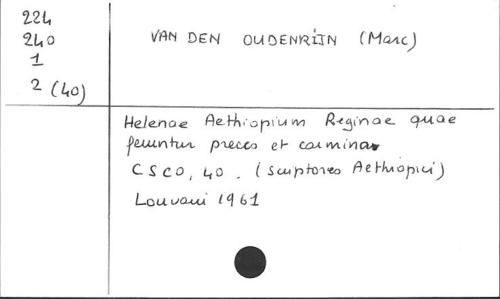 224
240
1
2 (40)
VAN DEN OUDENRIJN (Marc)
Helenae Aethiopium Reginae quae
feruntur preces et carmina
CSCO, 40. (Scriptores Aethiopici)
Louvani 1961